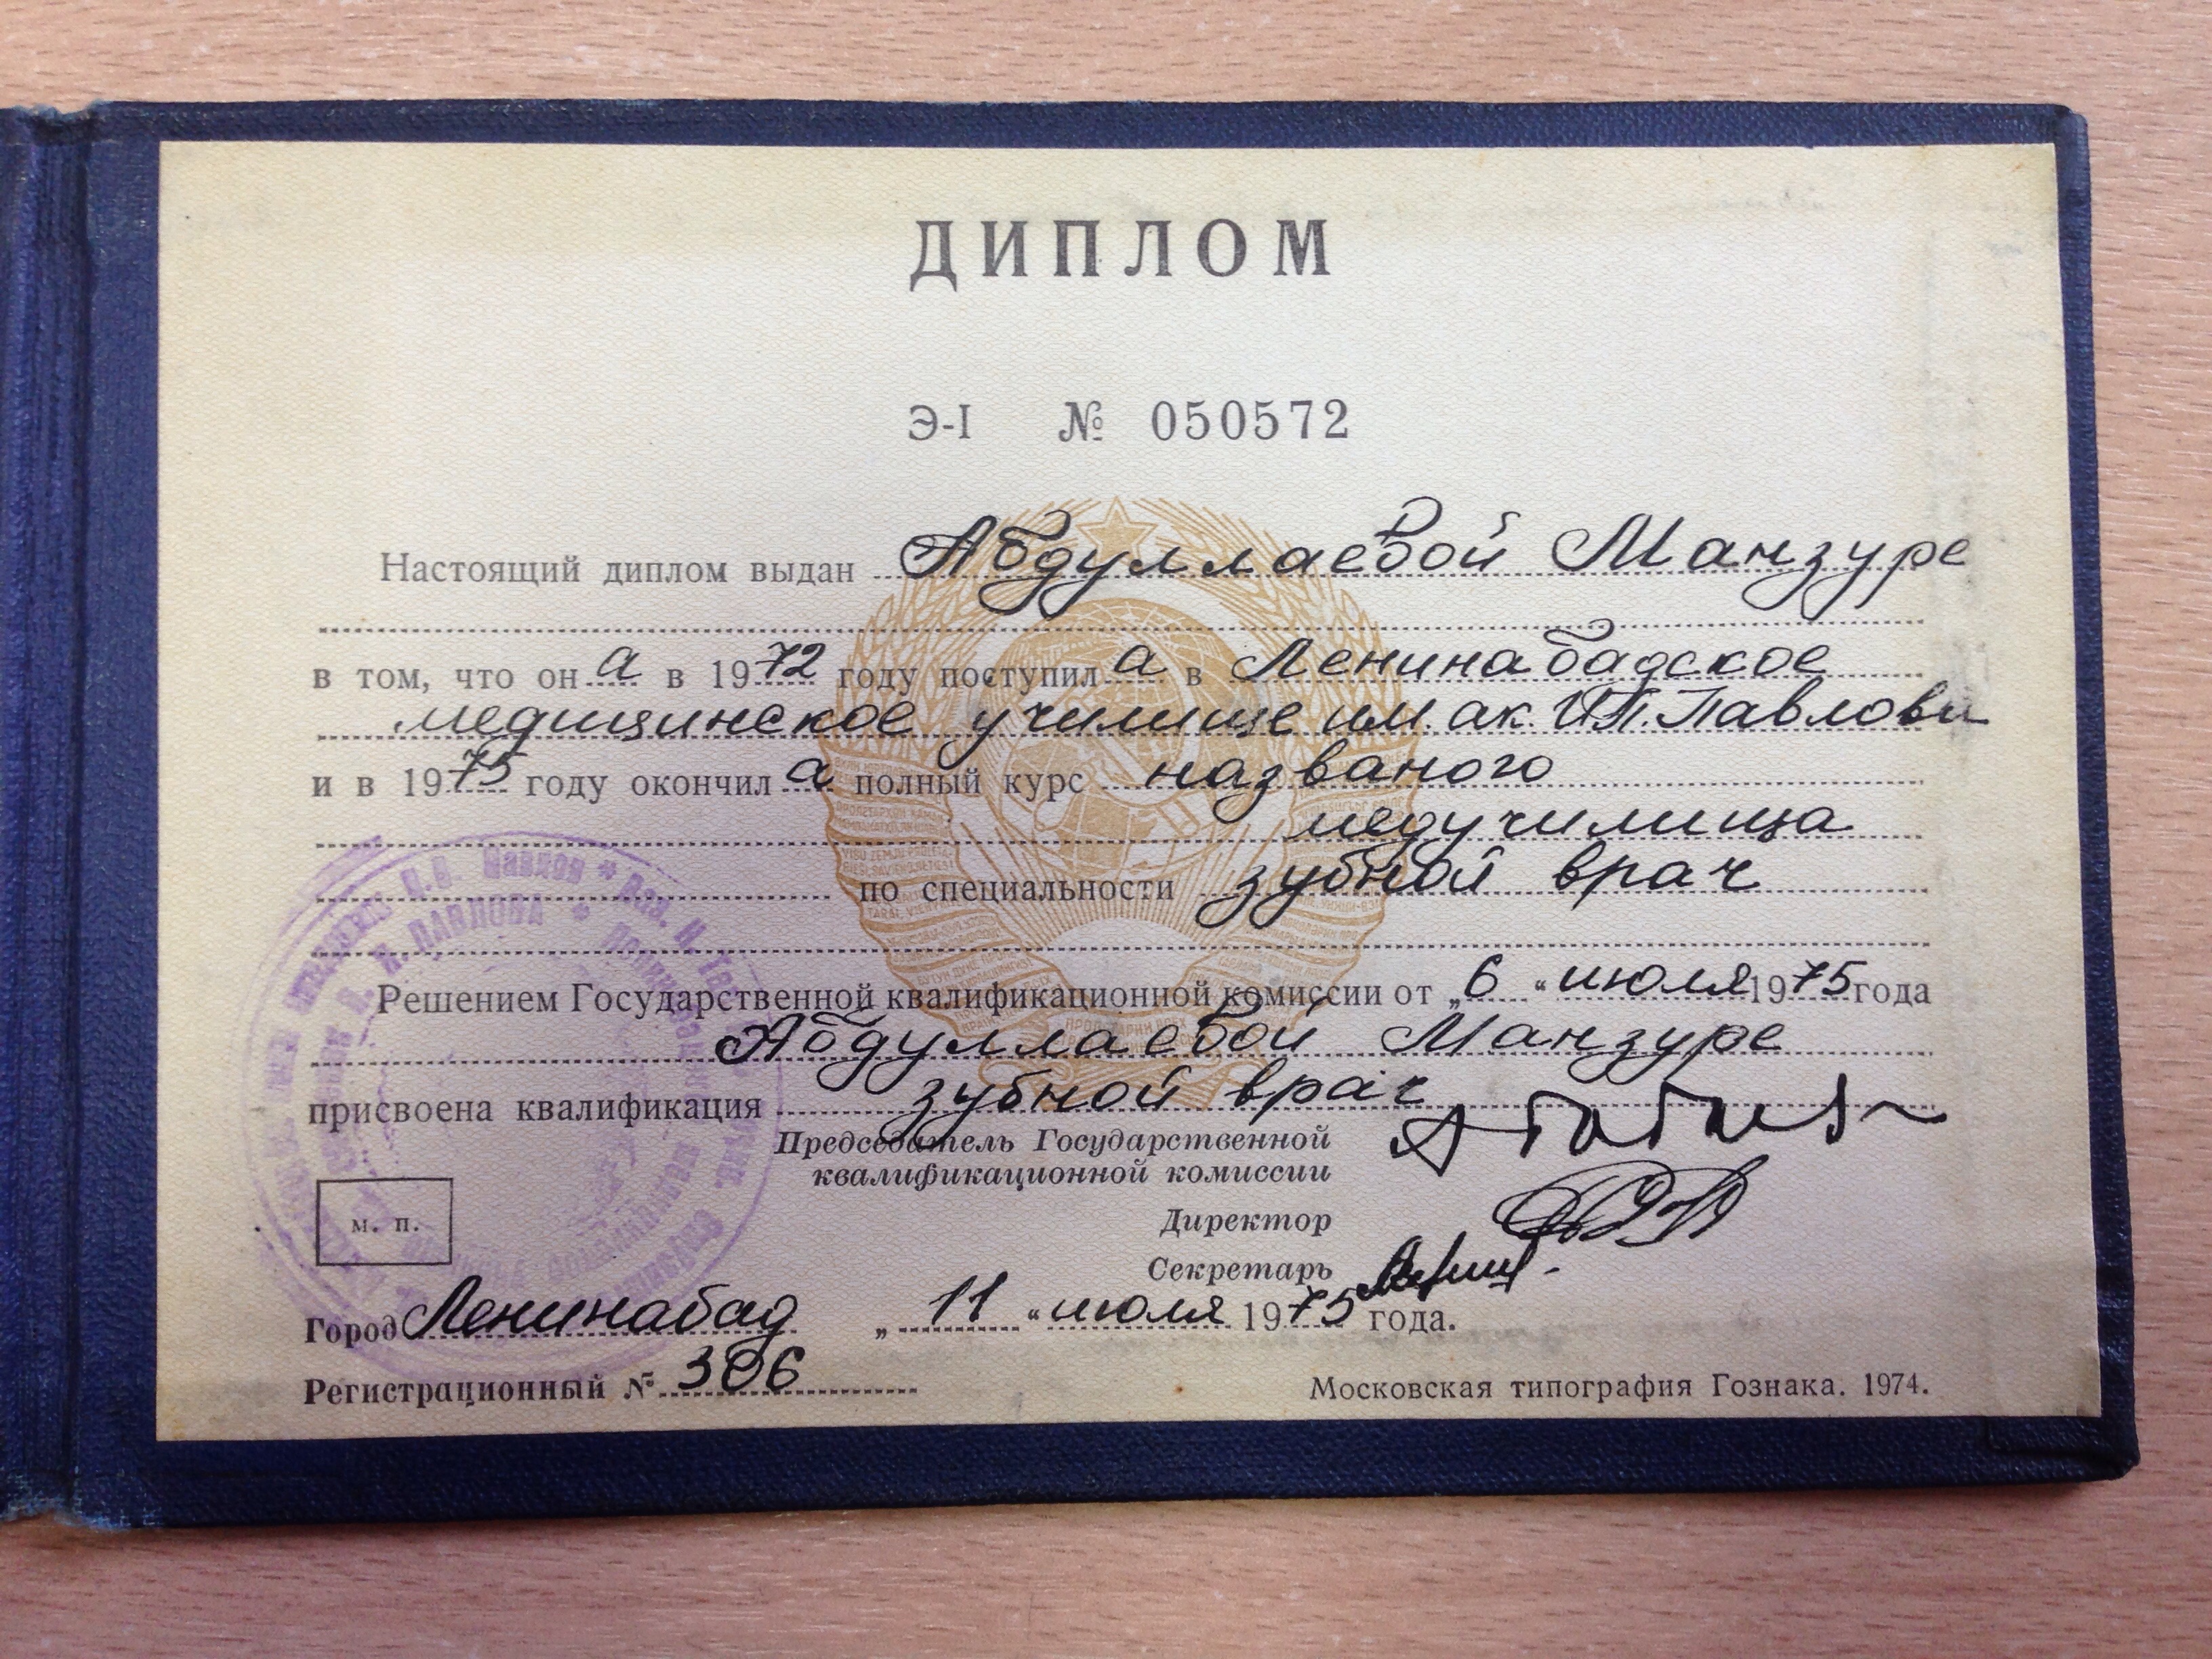 ДИПЛОМ
Э-I № 050572
Настоящий диплом выдан Абдуллаевой Манзуре
в том, что он а в 1972 году поступил а в Ленинабадское
медицинское училище им. ак. И.П. Павлова
и в 1975 году окончил а полный курс названого
медучилища
по специальности зубной врач
Решением Государственной квалификационной комиссии от „6“ июля 1975 года
Абдуллаевой Манзуре
присвоена квалификация зубной врач
Председатель Государственной
квалификационной комиссии
Директор
м. п.
Секретарь
Город Ленинабад „11“ июля 1975 года.
Регистрационный № 306
Московская типография Гознака. 1974.